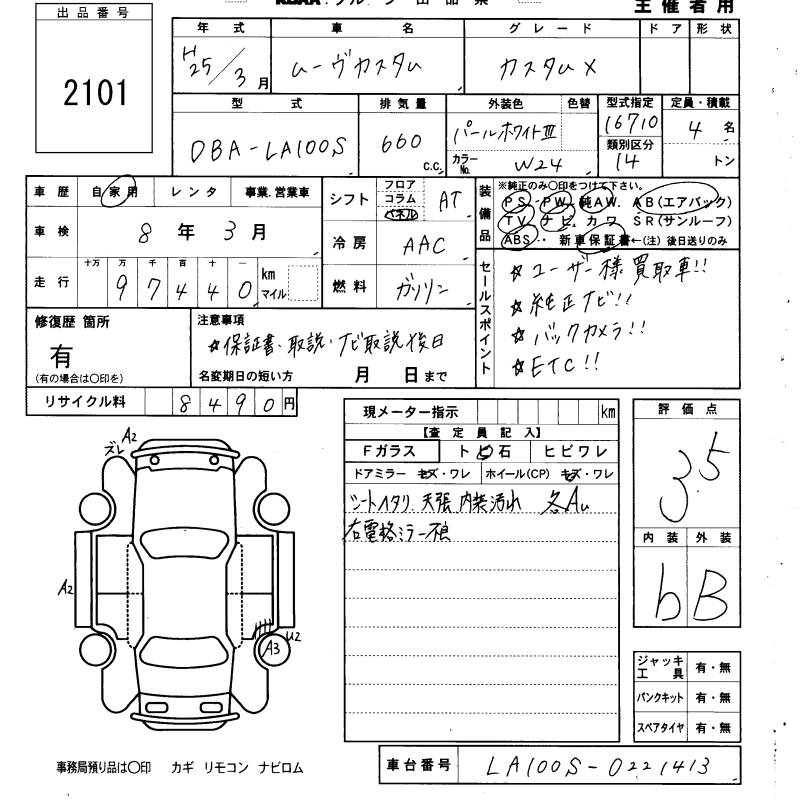 主催者用
出品番号
2101
年式 車名 グレード ドア 形状
H25/3月 ムーヴカスタム カスタムX
型式 排気量 外装色 色替 型式指定 定員・積載
DBA-LA100S 660 c.c. パールホワイトIII 16710 4名
カラーNo. W24 類別区分 14 トン
車歴 自家用 レンタ 事業.営業車
シフト フロア コラム パネル AT
車検 8年3月
冷房 AAC
走行 十万 万 千 百 十 一
97440 km マイル
燃料 ガソリン
装備品 ※純正のみ○印をつけて下さい。
PS・PW・純AW. AB(エアバック)
TV ナビ カワ SR(サンルーフ)
ABS・・新車保証書←(注)後日送りのみ
セールスポイント
☆ユーザー様買取車!!
☆純正ナビ!!
☆バックカメラ!!
☆ETC!!
修復歴 箇所
有
(有の場合は○印を)
注意事項
☆保証書、取説、ナビ取説後日
名変期日の短い方 月 日まで
リサイクル料 8490円
現メーター指示 km
【査定員記入】
Fガラス トビ石 ヒビワレ
ドアミラー キズ・ワレ ホイール(CP) キズ・ワレ
シートイタリ 天張 内装汚れ 各AU
右電格ミラー不良
評価点
3.5
内装 外装
b B
A2
ズレ
A2
U2
A3
ジャッキ工具 有・無
パンクキット 有・無
スペアタイヤ 有・無
事務局預り品は○印 カギ リモコン ナビロム
車台番号 LA100S-0221413